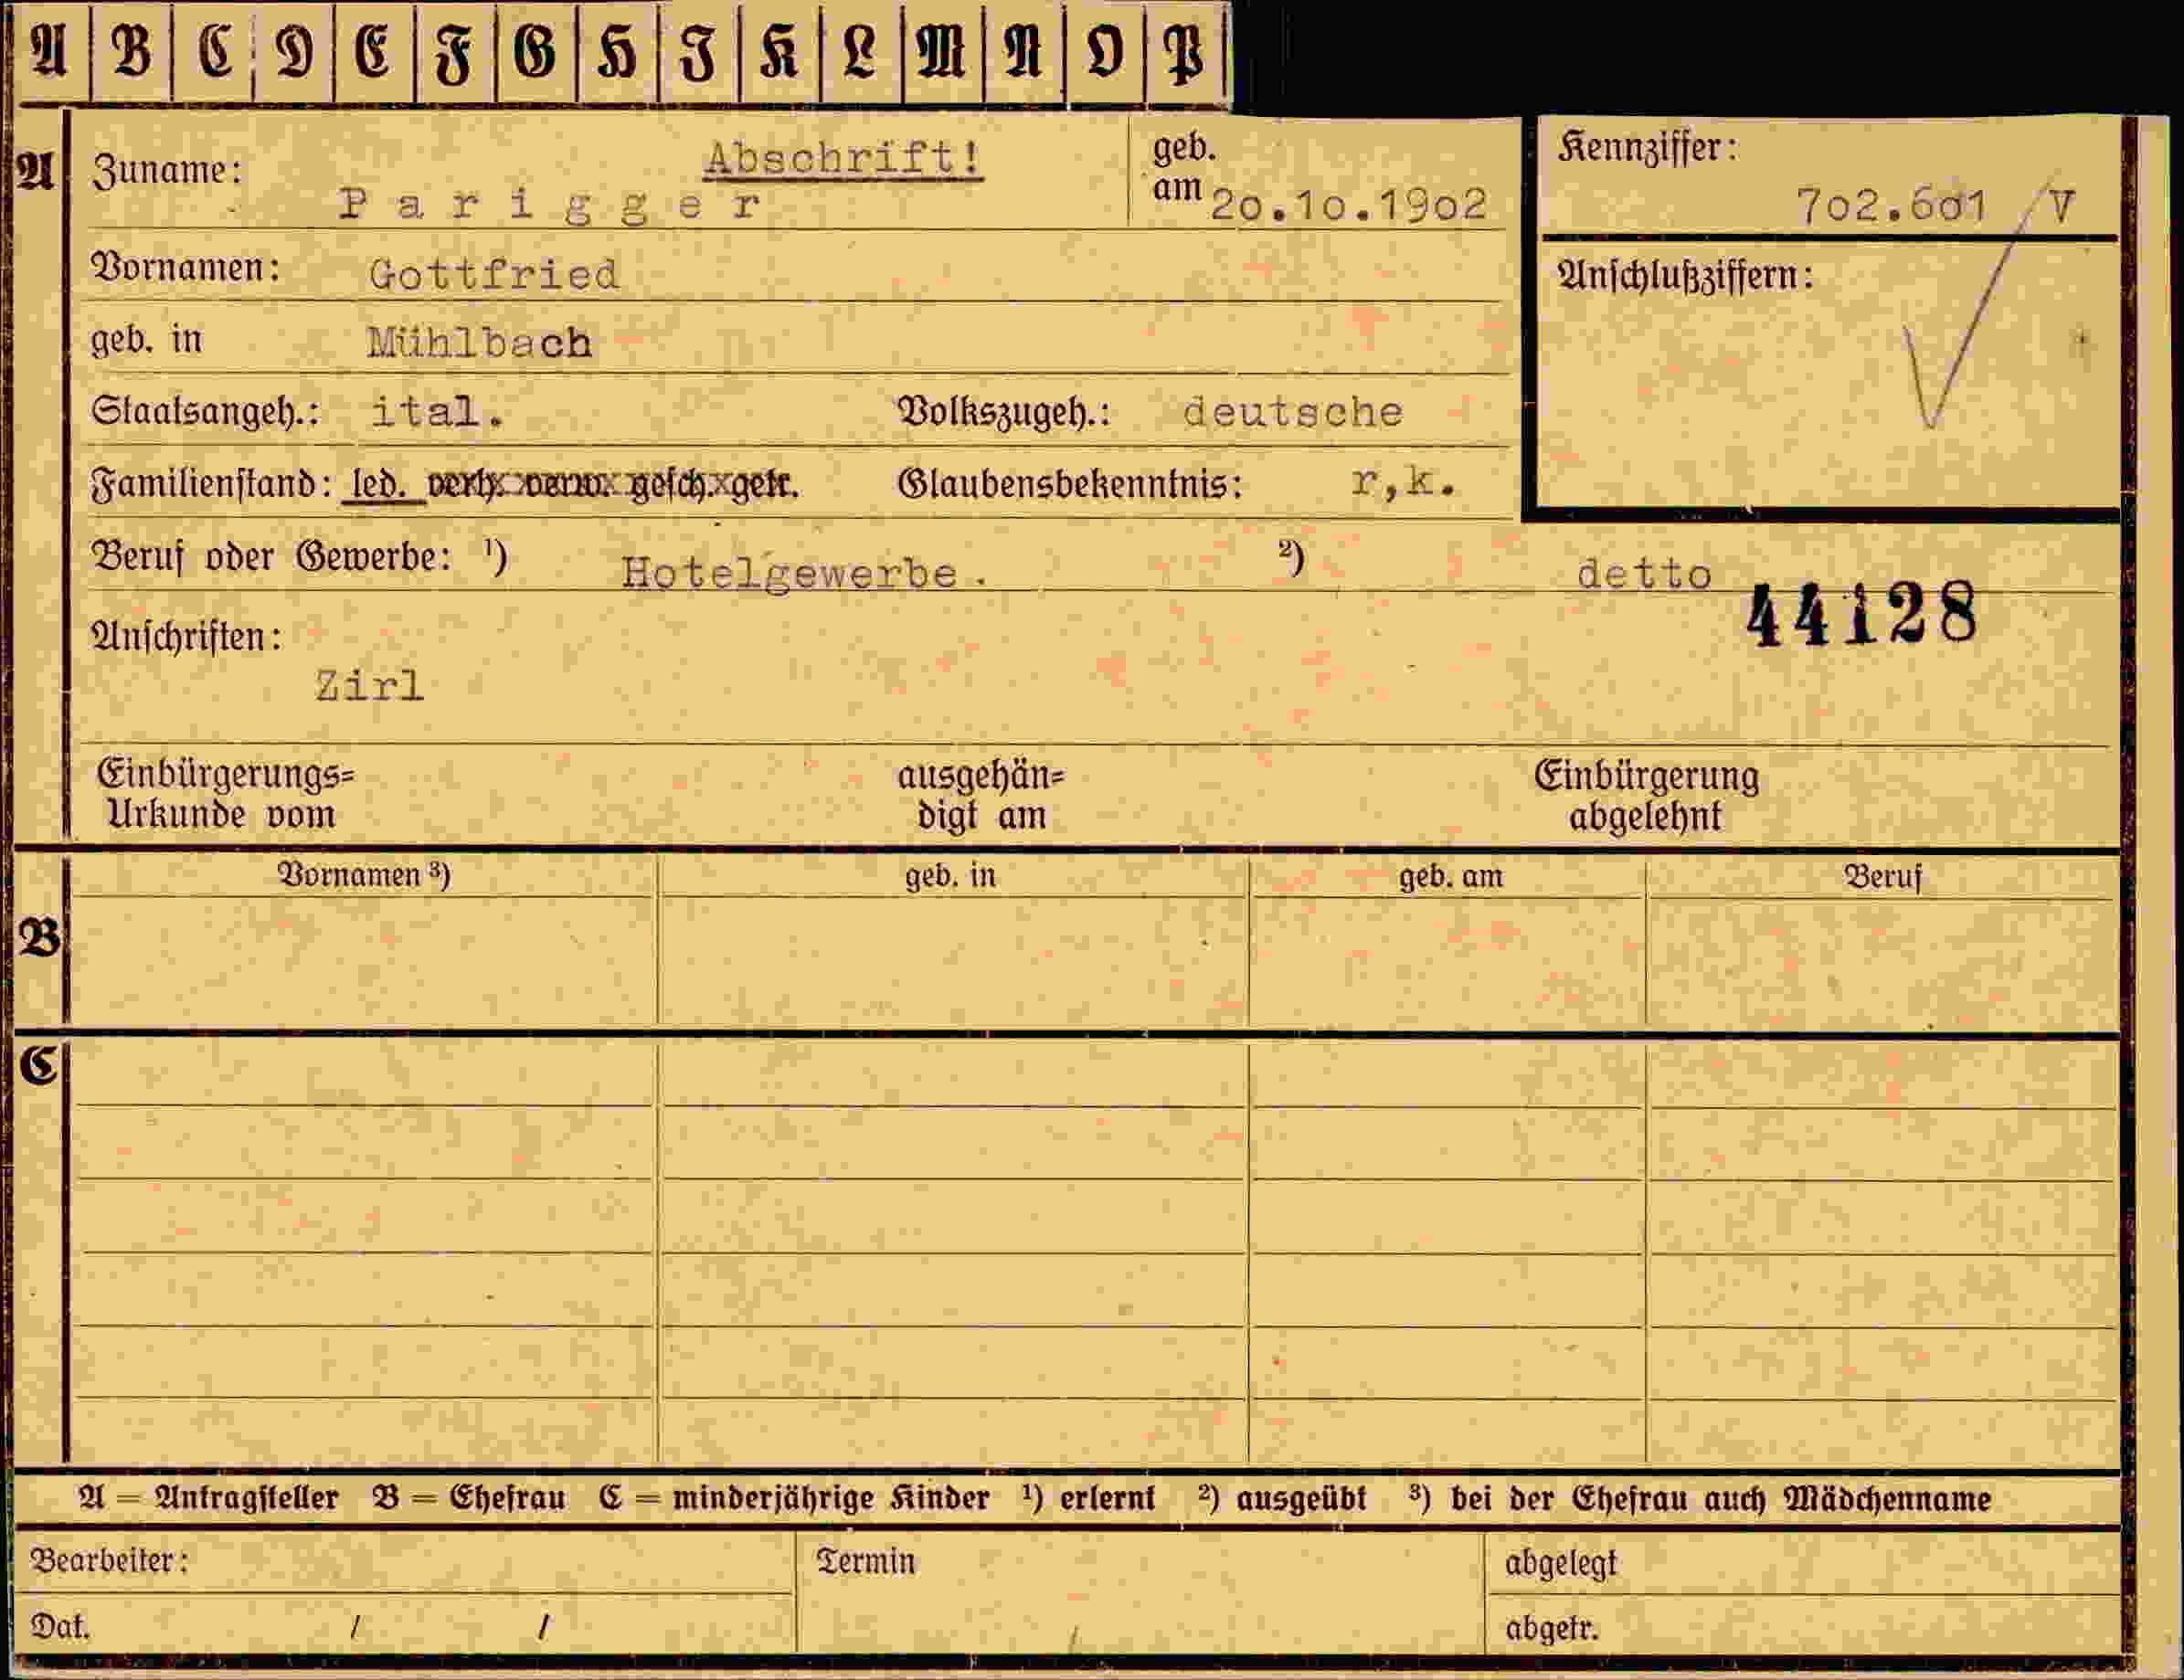 A B C D E F G H I K L M N O P
A Zuname: Parigger Abschrift! geb. am 20.10.1902 Kennziffer: 702.601 /V
Vornamen: Gottfried Anschlußziffern:
geb. in Mühlbach
Staatsangeh.: ital. Volkszugeh.: deutsche
Familienstand: led. verh. verw. gesch. getr. Glaubensbekenntnis: r,k.
Beruf oder Gewerbe: ¹) Hotelgewerbe. ²) detto
44128
Anschriften:
Zirl
Einbürgerungs= ausgehän= Einbürgerung
Urkunde vom digt am abgelehnt
Vornamen ³) geb. in geb. am Beruf
B
C
A = Antragsteller B = Ehefrau C = minderjährige Kinder ¹) erlernt ²) ausgeübt ³) bei der Ehefrau auch Mädchenname
Bearbeiter: Termin abgelegt
Dat. / / abgetr.